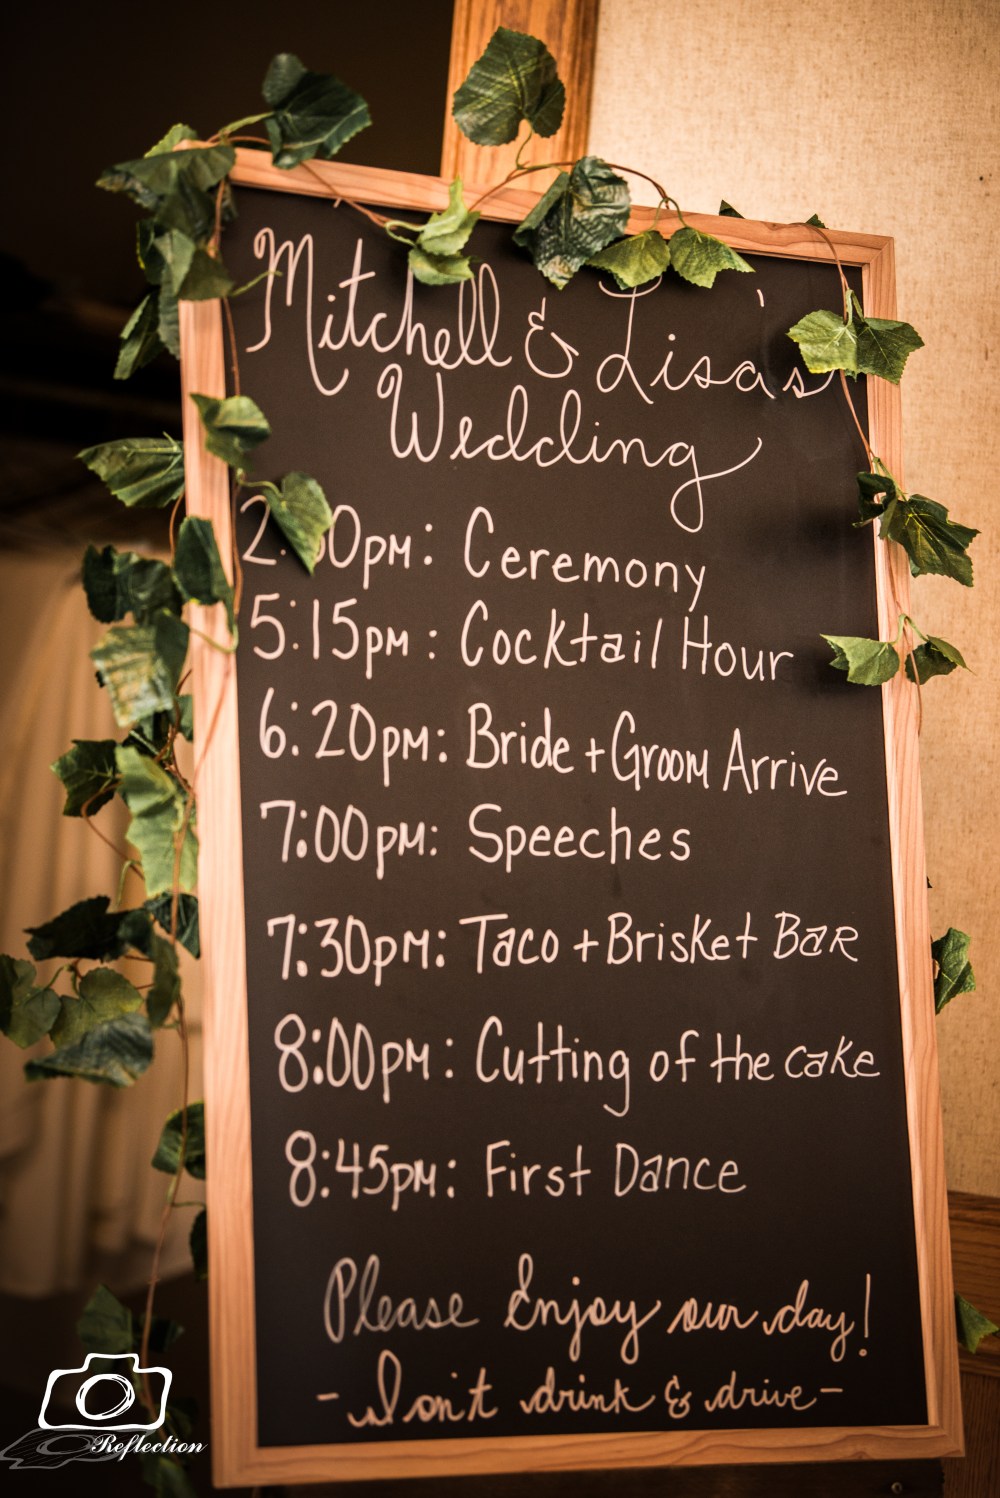 Mitchell & Lisa's
Wedding
Ceremony
5:15pm: Cocktail Hour
6:20pm: Bride + Groom Arrive
7:00pm: Speeches
7:30pm: Taco + Brisket Bar
8:00pm: Cutting of the cake
8:45pm: First Dance
Please Enjoy our day!
- Don't drink & drive -
Reflection